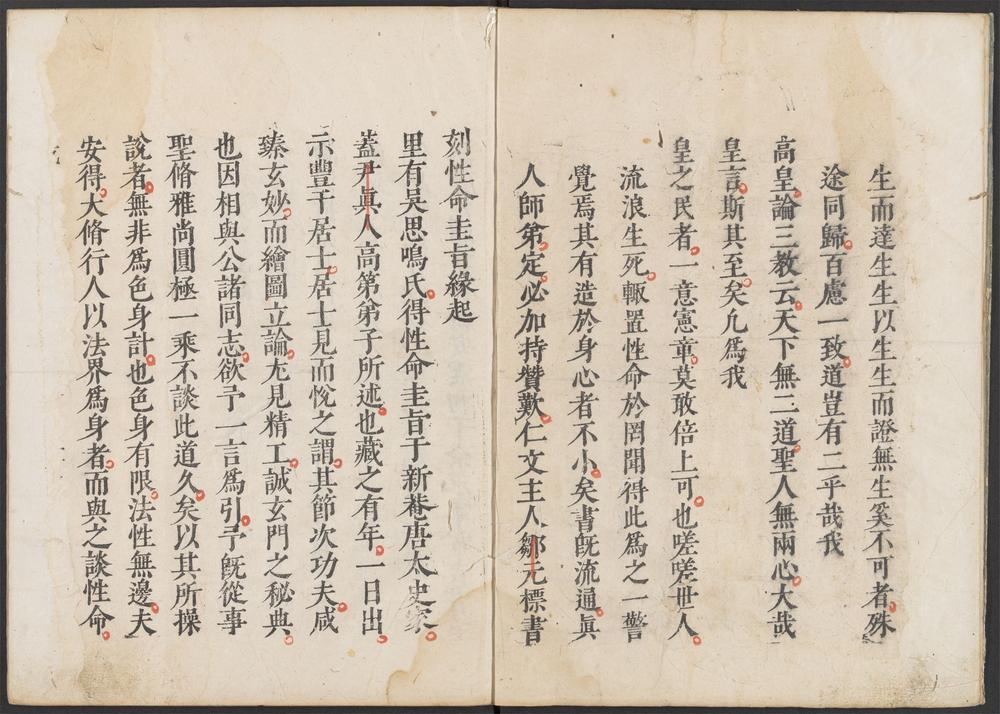 生而達生生以生生而證無生奚不可者殊
途同歸百慮一致道豈有二乎哉我
高皇論三教云天下無二道聖人無兩心大哉
皇言斯其至矣凢為我
皇之民者一意憲章莫敢倍上可也嗟嗟世人
流浪生死輙置性命於罔聞得此為之一警
覺焉其有造於身心者不小矣書旣流通眞
人師第定必加持贊歎仁文主人鄒元標書
刻性命圭旨緣起
里有吳思鳴氏得性命圭旨于新菴唐太史家
葢尹眞人高第弟子所述也藏之有年一日出
示豐干居士居士見而悅之謂其節次功夫咸
臻玄妙而繪圖立論尤見精工誠玄門之秘典
也因相與公諸同志欲予一言為引予旣從事
聖脩雅尚圓極一乘不談此道久矣以其所操
說者無非為色身計也色身有限法性無邊夫
安得大脩行人以法界為身者而與之談性命